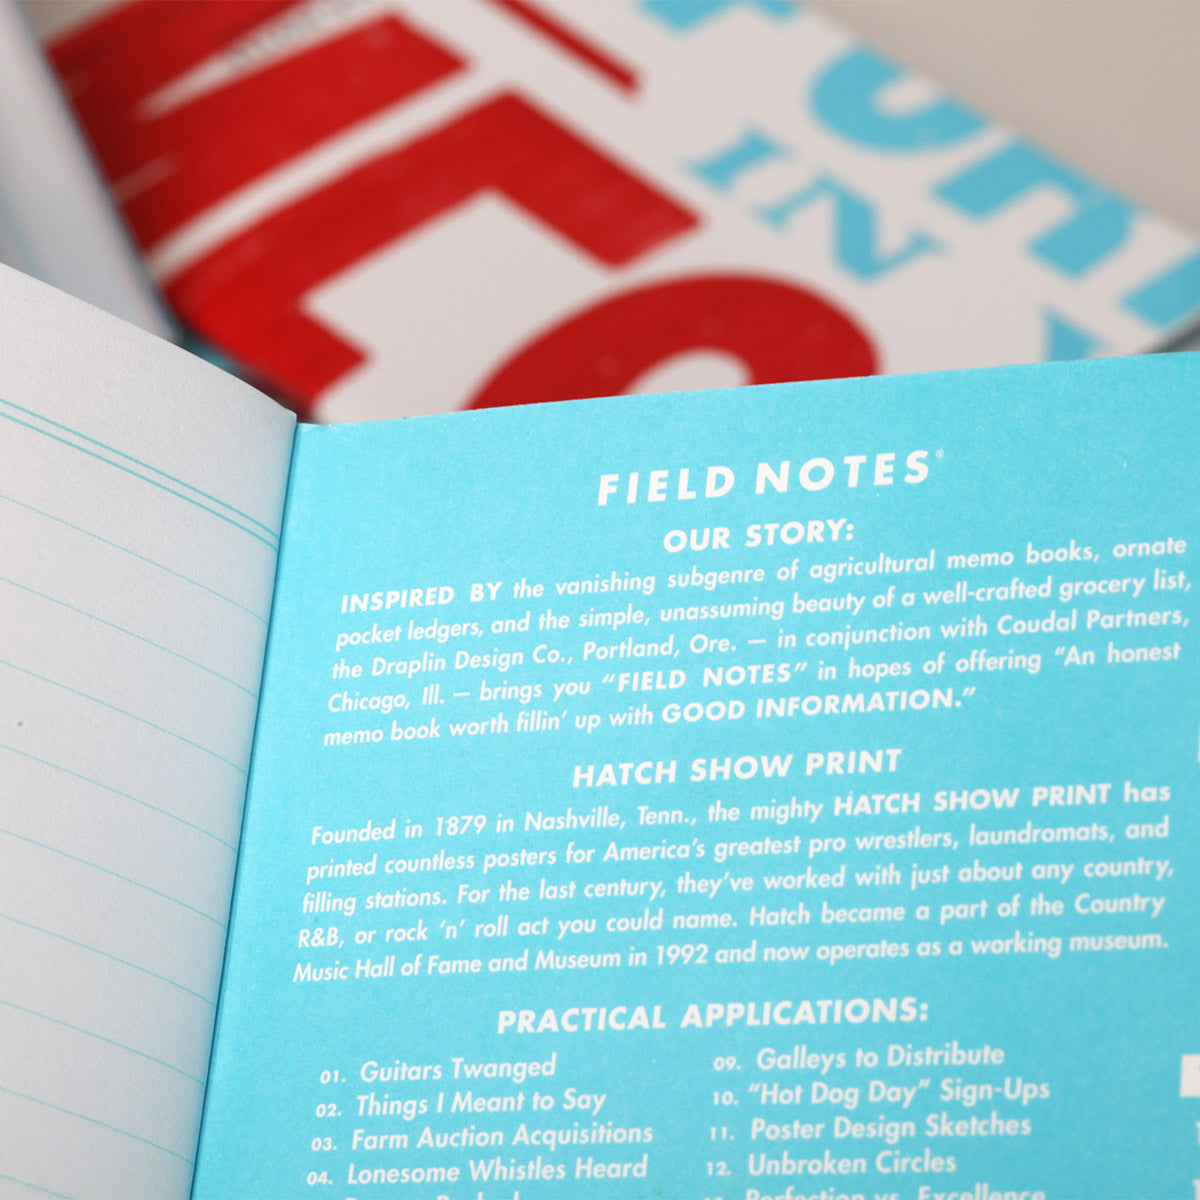 IN
FIELD NOTES®
OUR STORY:
INSPIRED BY the vanishing subgenre of agricultural memo books, ornate
pocket ledgers, and the simple, unassuming beauty of a well-crafted grocery list,
the Draplin Design Co., Portland, Ore. — in conjunction with Coudal Partners,
Chicago, Ill. — brings you “FIELD NOTES” in hopes of offering “An honest
memo book worth fillin’ up with GOOD INFORMATION.”
HATCH SHOW PRINT
Founded in 1879 in Nashville, Tenn., the mighty HATCH SHOW PRINT has
printed countless posters for America’s greatest pro wrestlers, laundromats, and
filling stations. For the last century, they’ve worked with just about any country,
R&B, or rock ‘n’ roll act you could name. Hatch became a part of the Country
Music Hall of Fame and Museum in 1992 and now operates as a working museum.
PRACTICAL APPLICATIONS:
01. Guitars Twanged
02. Things I Meant to Say
03. Farm Auction Acquisitions
04. Lonesome Whistles Heard
09. Galleys to Distribute
10. “Hot Dog Day” Sign-Ups
11. Poster Design Sketches
12. Unbroken Circles
Perfection vs. Excellence